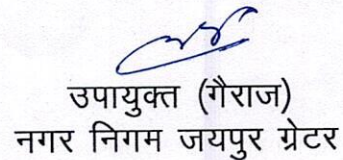 उपायुक्त (गैराज)
नगर निगम जयपुर ग्रेटर